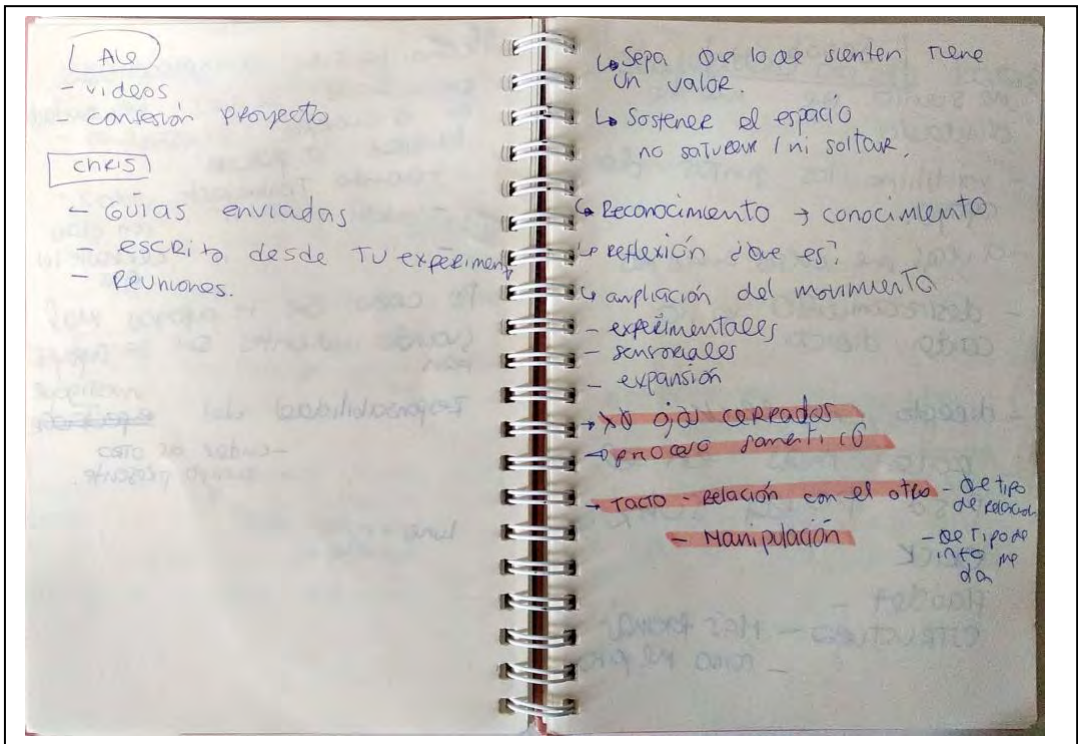 Ale
- videos
- confesión proyecto
Chris
- Guías enviadas
- escrito desde tu experiment
- Reuniones.
↳ Sepa que lo qe sienten tiene
un valor.
↳ Sostener el espacio
no saturar / ni soltar.
↳ Reconocimiento → conocimiento
↳ reflexión ¿que es?
↳ ampliación del movimiento
- experimentales
- sensoriales
- expansión
→ ojos cerrados
→ proceso
→ Tacto - Relación con el otro - qe tipo
de relación
- Manipulación - qe tipo de
info me
da